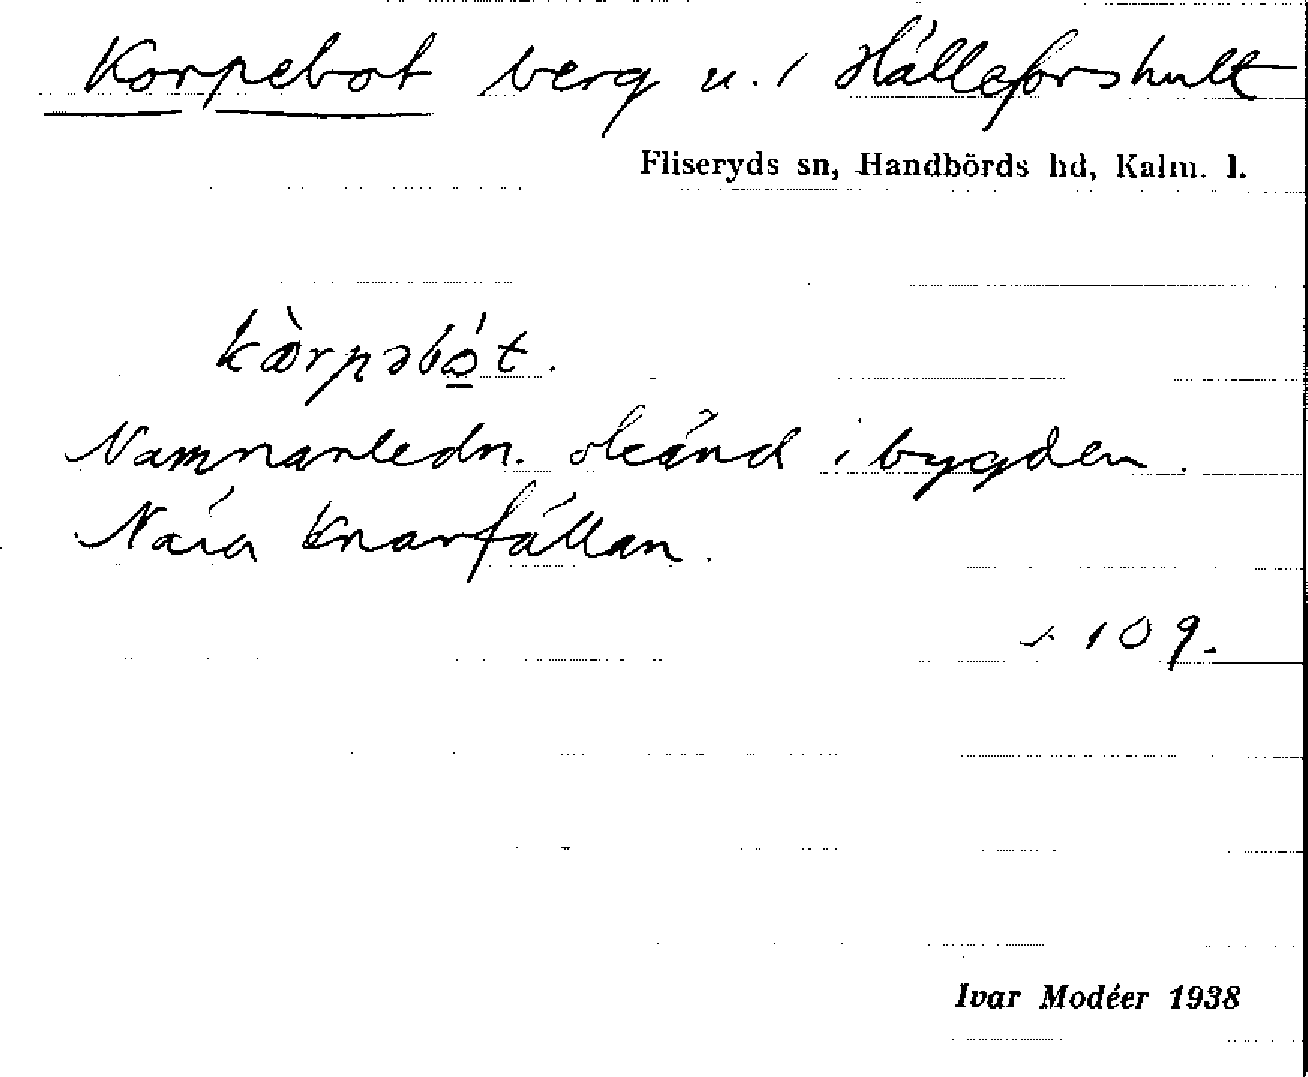 Korpebot berg u. / Hälleforshult
Fliseryds sn, Handbörds hd, Kalm. l.
kòrpəbó̲t.
Namnanledn. okänd i bygden.
Nära Knarrfällan.
s. 109.
Ivar Modéer 1938